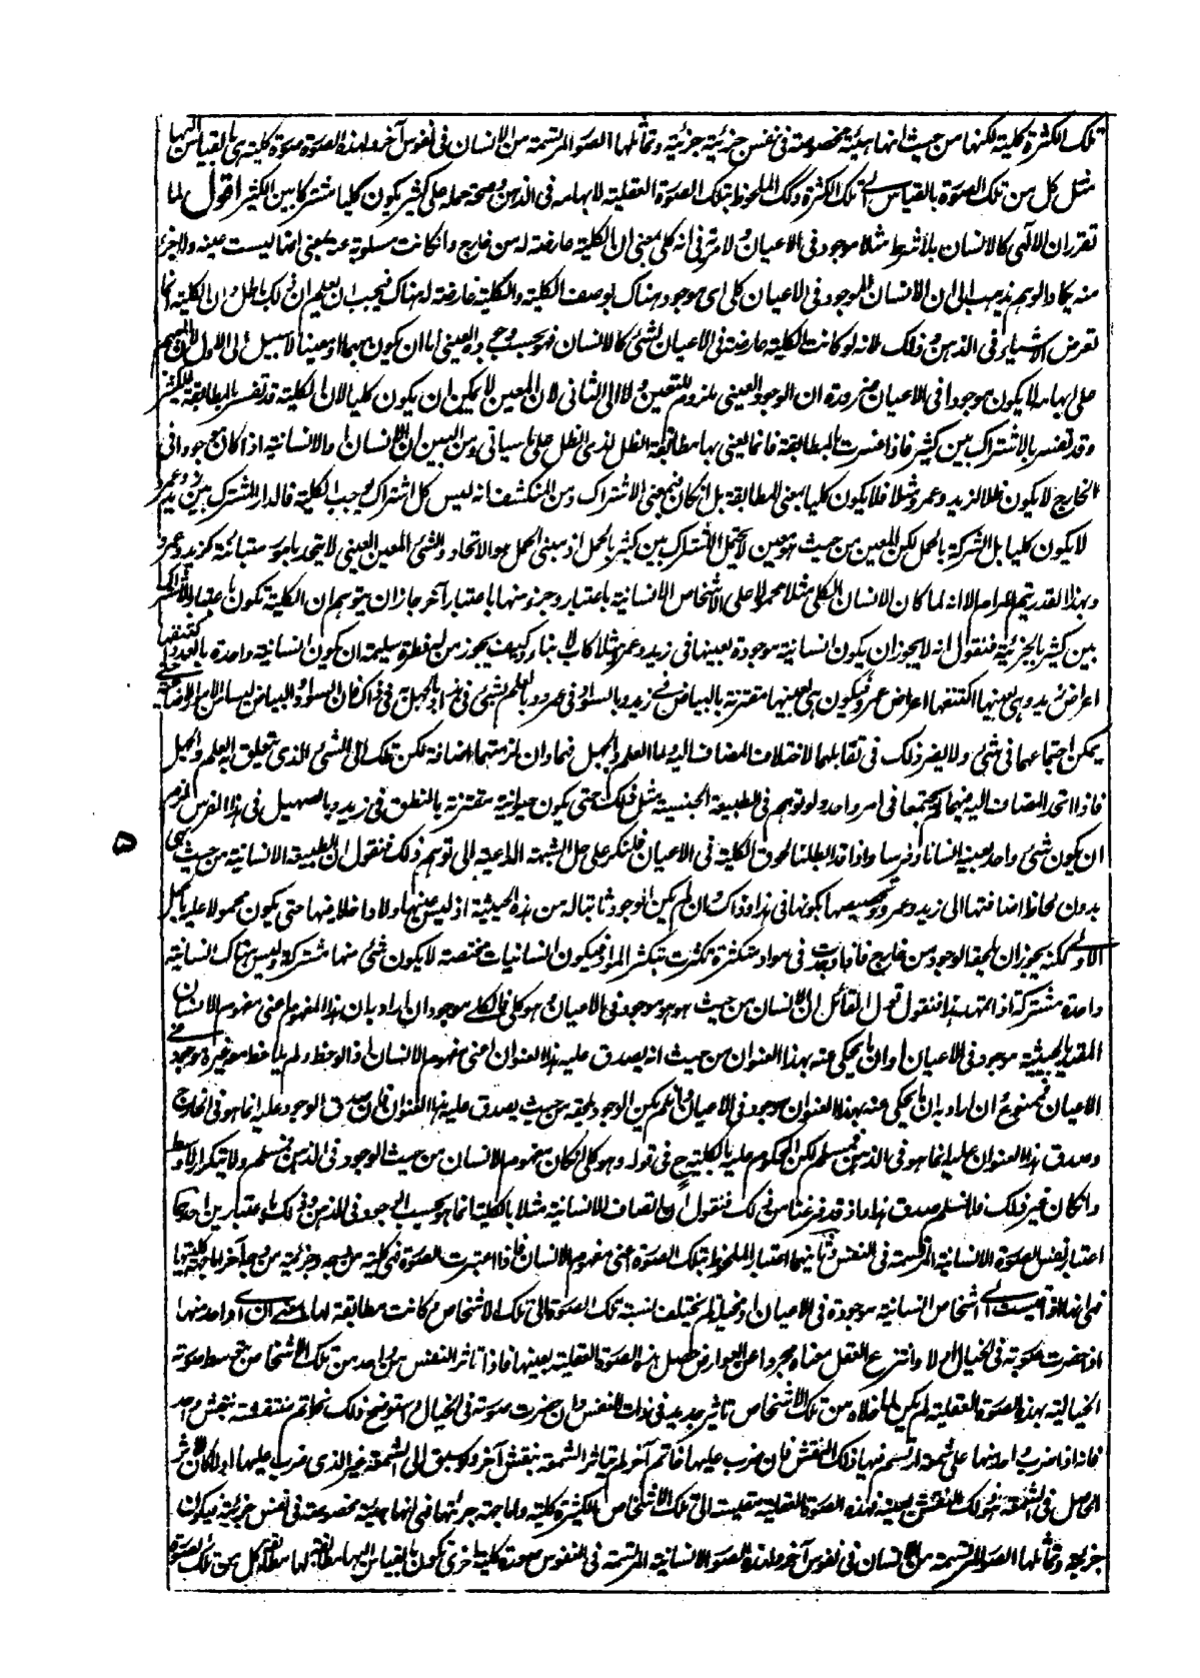 تلك الكثرة كلية لكنها من حيث انها هيئة مخصوصة فى نفس جزئية جزئية وتماثلها الصور المرتسمة من الانسان فى نفوس آخر ولهذه الصورة صورة كلية هى بالقياس اليها
مثل كل من تلك الصورة بالقياس الى تلك الكثرة وذلك الملحوظ بتلك الصورة العقلية لابهامه فى الذهن وصحة حمله على كثير يكون كليا مشتركا بين الكثير اقول لما
تقرر ان الالٓهى كالانسان بلا شرط مثلا موجود فى الاعيان ولا مرية فى انه كلى بمعنى ان الكلية عارضة له من خارج وان كانت مسلوبة عنه بمعنى انها ليست عينه ولا جزء
منه يكاد الوهم يذهب الى ان الانسان الموجود فى الاعيان كلى اى موجود هناك بوصف الكلية والكلية عارضة له هناك فيجب ان يعلم ان ذلك باطل وان الكلية انما
تعرض الاشياء فى الذهن وذلك لانه لو كانت الكلية عارضة فى الاعيان لشئ كالانسان فهو بحسب وجوده العينى اما ان يكون مبهما او معينا لا سبيل الى الاول لان المبهم
على ابهامه لا يكون موجودا فى الاعيان ضرورة ان الوجود العينى ملزوم للتعين ولا الى الثانى لان المعين لا يمكن ان يكون كليا لان الكلية قد تفسر بالمطابقة للكثير
وقد تفسر بالاشتراك بين كثير فاذا فسرت بالمطابقة فانما يعنى بها مطابقة الظل لذى الظل على ما سياتى ومن البين ان الانسان او الانسانية اذا كان موجودا فى
الخارج لا يكون ظلا لزيد وعمرو مثلا فلا يكون كليا بمعنى المطابقة بل ان كان فبمعنى الاشتراك ومن المنكشف انه ليس كل اشتراك يوجب الكلية فالدار المشترك بين زيد وعمرو
لا يكون كليا بل الشركة بالحمل لكن المعين من حيث هو معين لا يحتمل الاشتراك بين كثير بالحمل اذ مبنى الحمل هو الاتحاد والشئ المعين العينى لا يتحد بامور متباينة كزيد وعمرو
وبهذا القدر يتم المرام الا انه لما كان الانسان الكلى مثلا محمولا على الاشخاص الانسانية باعتبار وجزء منها باعتبار آخر جاز ان يتوهم ان الكلية تكون باعتبار الاشتراك
بين كثير بالجزئية فنقول انه لا يجوز ان يكون انسانية موجودة بعينها فى زيد وعمرو مثلا كاب لابناء وكيف يجوز من له فطرة سليمة ان يكون انسانية واحدة بالعدد اكتنفها
اعراض زيد وهى بعينها اكتنفها اعراض عمرو فيكون هى بعينها مقترنة بالبياض فى زيد وبالسواد فى عمرو وبالعلم بشئ فى هذا وبالجهل به فى ذاك فان السواد والبياض ليسا من الامور الاضافية حتى
يمكن اجتماعهما فى شئ ولا يضر ذلك فى تقابلهما لاختلاف المضاف اليه واما العلم والجهل فهما وان لزمتهما اضافة لكن تلك الى الشئ الذى يتعلق به العلم والجهل
فاذا اتحد المضاف اليه فيهما لم يجتمعا فى امر واحد ولو توهم فى الطبيعة الجنسية مثل ذلك حتى يكون حيوانية مقترنة بالمنطق فى زيد وبالصهيل فى هذا الفرس لزم
ان يكون شئ واحد بعينه انسانا وفرسا واذا قد ابطلنا لحوق الكلية فى الاعيان فلنكر على حل الشبهة الداعية الى توهم ذلك فنقول ان الطبيعة الانسانية من حيث هى
بدون لحاظ اضافتها الى زيد وعمرو وتخصيصها بكونها فى هذا وذاك وان لم يكن الوجود ثابتا له من هذه الحيثية اذ ليس عينها ولا داخلا فيها حتى يكون محمولا عليه بالحمل
الاولى لكنه يجوز ان يلحقه الوجود من خارج فاذا وجدت فى مواد متكثرة تكثرت بتكثر المواد فيكون انسانيات مختصة لا يكون شئ منها مشتركة وليس هناك انسانية
واحدة مشتركة اذا تمهد هذا فنقول قول القائل ان الانسان من حيث هو هو موجود فى الاعيان وهو كلى فالكلى موجود ان اراد به ان هذا المفهوم اعنى مفهوم الانسان
المقيد بالحيثية موجود فى الاعيان او ان ما يحكى عنه بهذا العنوان من حيث انه يصدق عليه هذا العنوان اعنى مفهوم الانسان اذا لوحظ ولم يلاحظ معه غيره موجود فى
الاعيان فممنوع وان اراد به ان ما يحكى عنه بهذا العنوان موجود فى الاعيان وان لم يكن الوجود لحقه من حيث يصدق عليه هذا العنوان فان صدق الوجود عليه انما هو فى الخارج
وصدق هذا العنوان عليه انما هو فى الذهن فمسلم لكن المحكوم عليه بالكلية ح فى قوله وهو كلى ان كان مفهوم الانسان من حيث الوجود فى الذهن فمسلم ولا يتكرر الاوسط
وان كان غير ذلك فلا نسلم صدق هذا واذ قد فرغنا من ذلك فنقول ان اتصاف الانسانية مثلا بالكلية انما هو بحسب الوجود فى الذهن وفى ذلك اعتبارين احدها
اعتبار نفس الصورة الانسانية المرتسمة فى النفس وثانيهما اعتبار الملحوظ بتلك الصورة اعنى مفهوم الانسان فاذا اعتبرت الصورة فهى كلية من جهة وجزئية من جهة آخر اما جهة كليتها
فهى انها لو قيست الى اشخاص انسانية موجودة فى الاعيان او متخيلة لم يختلف نسبة تلك الصورة الى تلك الاشخاص وكانت مطابقة لها بمعنى ان اى واحد منها
اذا حضرت صورته فى الخيال اولا وانتزع العقل معناه مجردا عن العوارض حصل هذه الصورة العقلية بعينها فاذا تاثر النفس من واحد من تلك الاشخاص بتوسط صورته
الخيالية بهذه الصورة العقلية لم يكن لما خلاه من تلك الاشخاص تاثير جديد فى ذات النفس وان حضرت صورته فى الخيال وستوضح ذلك بخواتم منتقشة بنقش واحد
فانه اذا ضرب احد منها على شمعة ارتسم فيها ذلك النقش فان ضرب عليها خاتم آخر لم يتاثر الشمعة بنقش آخر ولو سبق الى الشمعة غير الذى ضرب عليها اولا كان الاثر
الحاصل فى الشمعة هو ذلك النقش بعينه فهذه الصورة العقلية مقيسة الى تلك الاشخاص الكثيرة كلية واما جهة جزئيتها فهى انها هيئة مخصوصة فى نفس جزئية فيكون
جزئية وتماثلها الصور المرتسمة من الانسان فى نفوس آخر ولهذه الصور الانسانية المرتسمة فى النفوس صورة كلية اخرى تكون بالقياس اليها مطابقة لها مطابقة كل من تلك الصور
۵